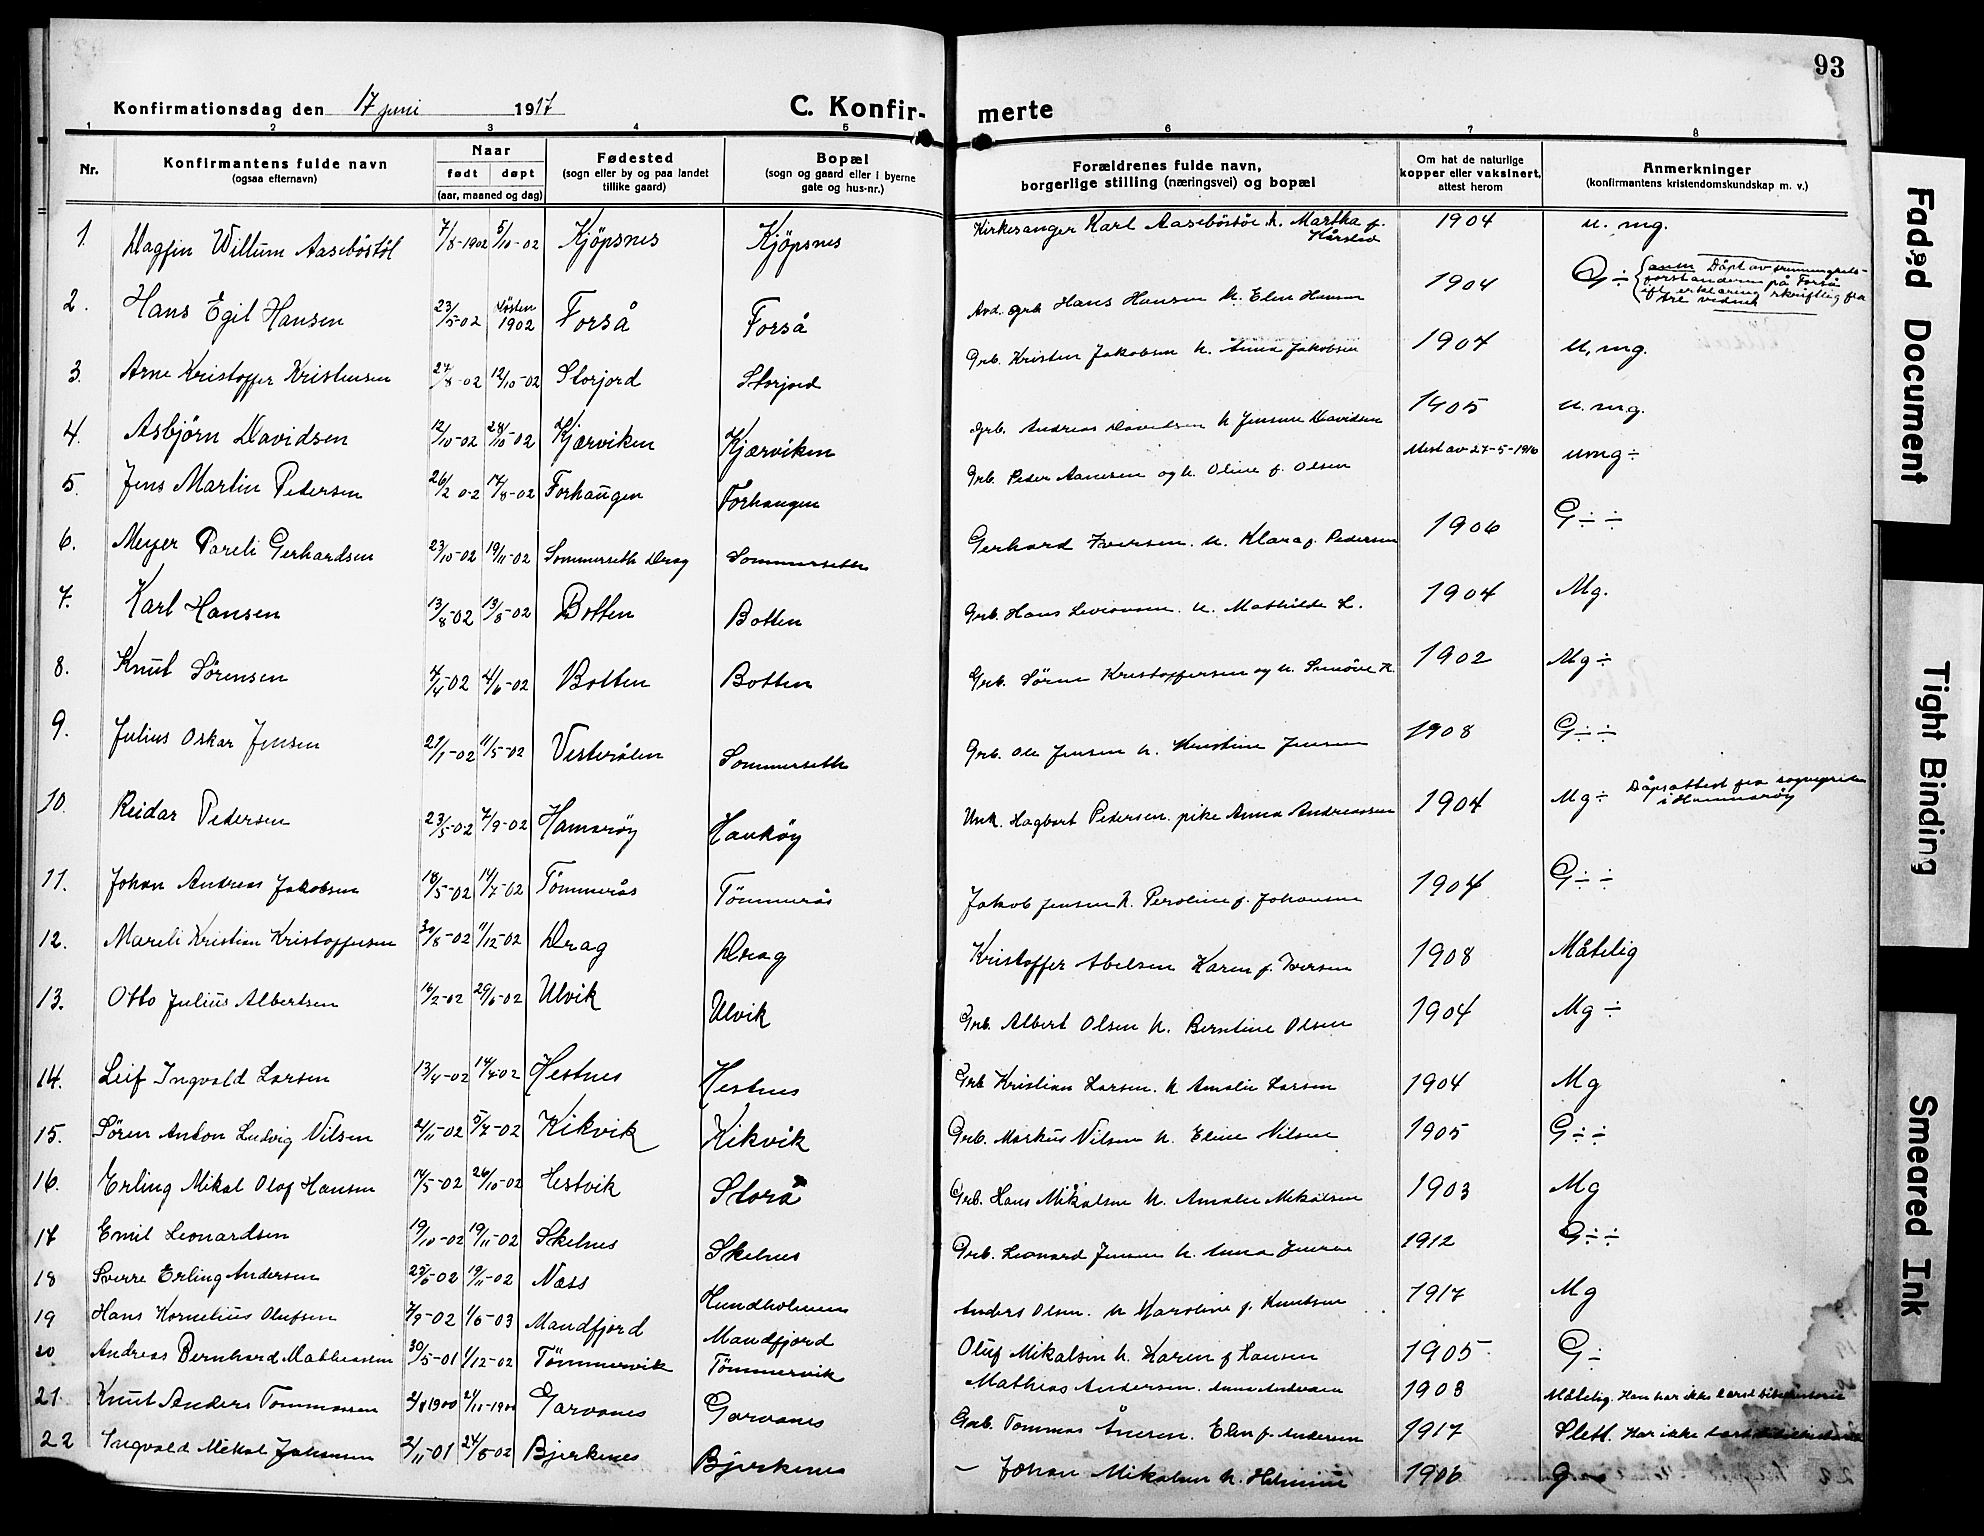 93
Konfirmationsdag den 17 juni 1917
C. Konfir-
merte
1 2 3 4 5 6 7 8
Nr.
Konfirmantens fulde navn
(ogsaa efternavn)
Naar
født døpt
(aar, maaned og dag)
Fødested
(sogn eller by og paa landet
tillike gaard)
Bopæl
(sogn og gaard eller i byerne
gate og hus-nr.)
Forældrenes fulde navn,
borgerlige stilling (næringsvei) og bopæl
Om hat de naturlige
kopper eller vaksinert,
attest herom
Anmerkninger
(konfirmantens kristendomskundskap m. v.)
1. Magfin Willum Aasebøstøl 7/8-1902 5/10-02 Kjöpsnes Kjöpsnes Kirkesanger Karl Aasebøstøl h. Martha f. 1904 u. mg.
2. Hans Egil Hansen 23/5-02 Høsten 1902 Forså Forså Hans Hansen h. Elen Hansen 1904 G ÷
3. Arne Kristoffer Kristensen 27/8-02 12/10-02 Storjord Storjord Grb. Kristen Jakobsen h. Anna Jakobsen 1904 u. mg.
4. Asbjörn Davidsen 12/10-02 28/10-02 Kjærviken Kjærviken Grb. Andreas Davidsen h. Jensine Davidsen 1905 u. mg.
5. Jens Martin Pedersen 26/2 02 17/8-02 Forhaugen Forhaugen Grb. Peder Aanesen og h. Oline f. Olsen Attest av 27-5-1916 umg ÷
6. Meyer Pareli Gerhardsen 23/10-02 19/11-02 Sommerseth Drag Sommerseth Gerhard Iversen. h. Klara f. Pedersen 1906 G ÷ ÷
7. Karl Hansen 13/8-02 13/8-02 Botten Botten Grb. Hans h. Mathilde L. 1904 Mg.
8. Knut Sörensen 4/4-02 4/6-02 Botten Botten Grb. Sören Kristoffersen og h. K. 1902 Mg ÷
9. Julius Oskar Jensen 29/1-02 11/5-02 Vesterålen Sommerseth Grb. Ole Jensen h. Kristine Jensen 1908 G ÷ ÷
10. Reidar Pedersen 23/5-02 7/9-02 Hamarøy Haukøy Unk. Hagbart Pedersen. pike Anna Andreassen 1904 Mg ÷ Dåpsattest fra sogneprest
i Hammarøy
11. Johan Andreas Jakobsen 18/5-02 14/7-02 Tömmerås Tömmerås Jakob Jensen h. Peroline f. Johansen 1904 G ÷ ÷
12. Mareli Kristian Kristoffersen 30/8-02 11/12-02 Drag Drag Kristoffer Abelsen Karen f. Iversen 1908 Måtelig
13. Otto Julius Albertsen 16/2-02 29/6-02 Ulvik Ulvik Grb. Albert Olsen h. Berntine Olsen 1904 Mg ÷
14. Leif Ingvald Larsen 13/4-02 14/7-02 Hestnes Hestnes Grb Kristian Larsen. h Amalie Larsen 1904 Mg
15. Sören Anton Ludvig Nilsen 2/11-02 5/7-02 Kikvik Kikvik Grb. Markus Nilsen h. Eline Nilsen 1905 G ÷ ÷
16. Erling Mikal Olaf Hansen 14/5-02 26/10-02 Hestvik Storå Grb. Hans Mikalsen h. Amalie Mikalsen 1903 Mg
17 Emil Leonardsen 19/10-02 19/11-02 Skelnes Skelnes Grb. Leonard Jensen h. Anna Jensen 1912 G ÷ ÷
18 Sverre Erling Andersen 23/6-02 19/11-02 Næss Hundholmen Anders Olsen. h Karoline f. Knutsen 1917 Mg
19 Hans Kornelius Olufsen 7/9-02 1/6-03 Mandfjord Mandfjord Oluf Mikalsen h. Karen f Hansen 1905 G ÷
20 Andreas Bernhard Mathiassen 30/5-01 1/12-02 Tömmervik Tömmervik Mathias Andersen. Anna Andersen 1903 Måtelig. Han har ikke lært bibelhistorie
21. Knut Anders Tommassen 2/8 1900 21/11-1900 Garvanes Garvanes Grb. Tommas Ånesen. Elen f. Andersen 1917 Slett. Har ikke lært bibelhistorie
22 Ingvald Mikal Johansen 2/11-01 24/8-02 Bjerkenes Bjerkenes – Johan Mikalsen h. Helmine 1906 G
Faded Document
Tight Binding
Smeared Ink